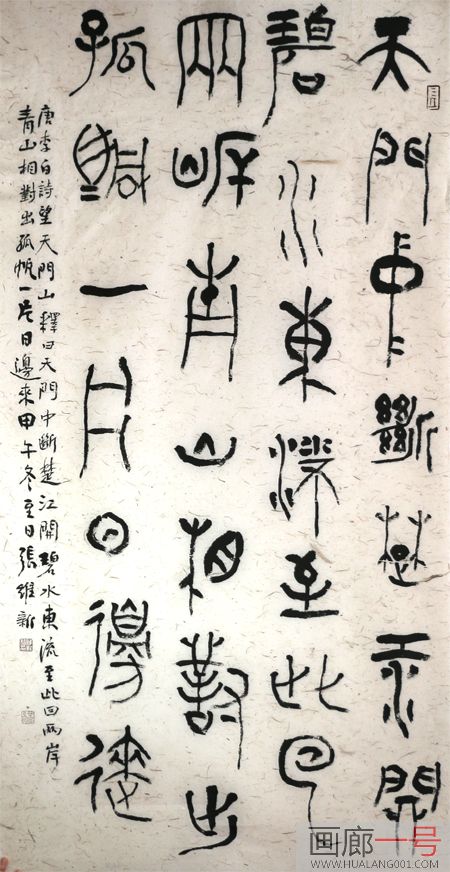 天門中斷楚江開
碧水東流至此回
兩岸青山相對出
孤帆一片日邊來
唐李白詩望天門山釋曰天門中斷楚江開碧水東流至此回兩岸
青山相對出孤帆一片日邊來甲午冬至日張維新
画廊一号
WWW.HUALANG001.COM